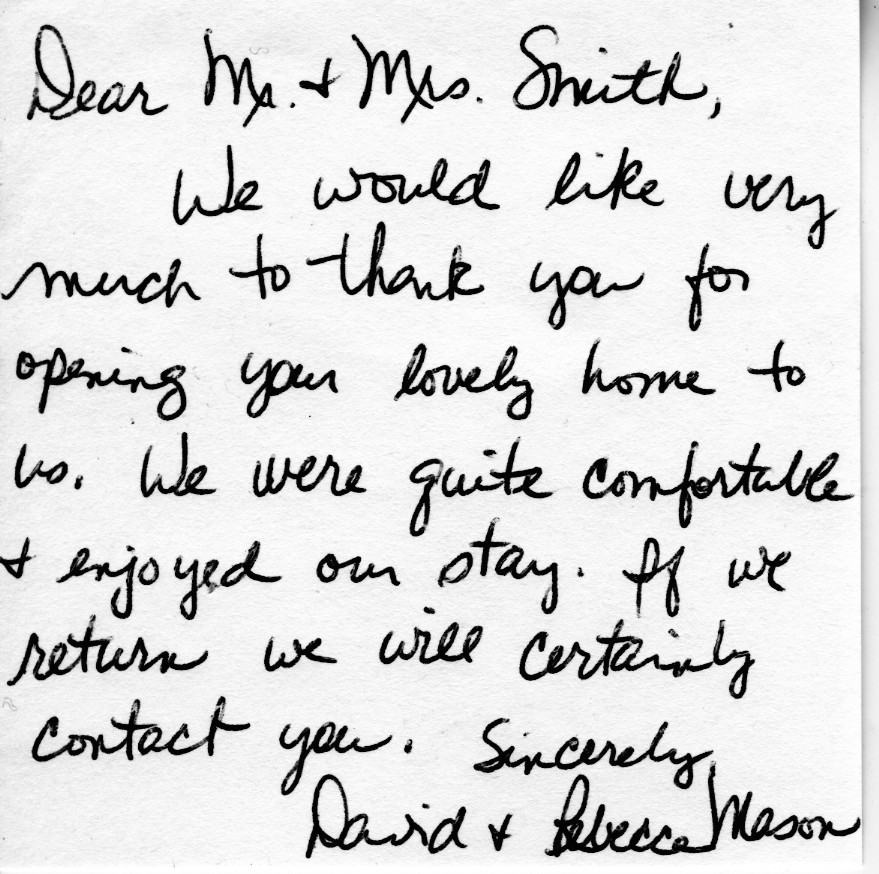 Dear Mr. & Mrs. Smith,
We would like very
much to thank you for
opening your lovely home to
us. We were quite comfortable
& enjoyed our stay. If we
return we will certainly
contact you. Sincerely,
David & Rebecca Mason